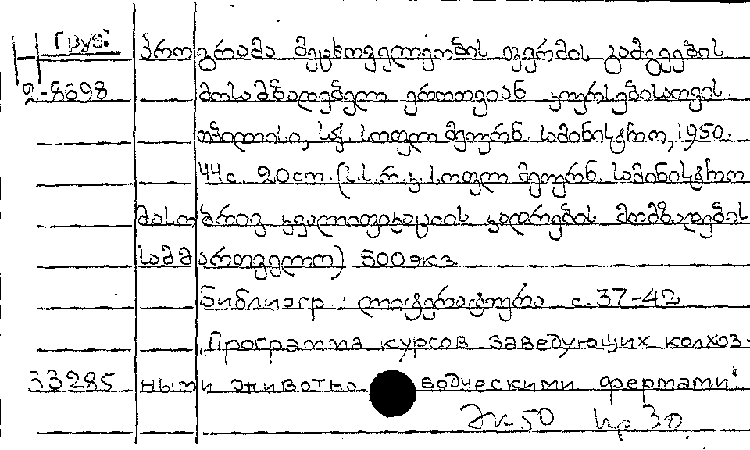 Груз: პროგრამა მეცხოველეობის ფერმის გამგეების
2-8698 მოსამზადებელი ერთთვიან კურსებისათვის.
თბილისი, საქ. სოფლ. მეურნ. სამინისტრო, 1950.
44 с. 20 cm. (ს.ს.რ.კ. სოფლ მეურნ. სამინისტრო
მასობრივ კვალიფიკაციის კადრების მომზადების
სამმართველო) 500 экз
Библиогр: ლიტერატურა с. 37-42
„Программа курсов заведующих колхоз-
33285 ными животно водческими фермами".
50 30